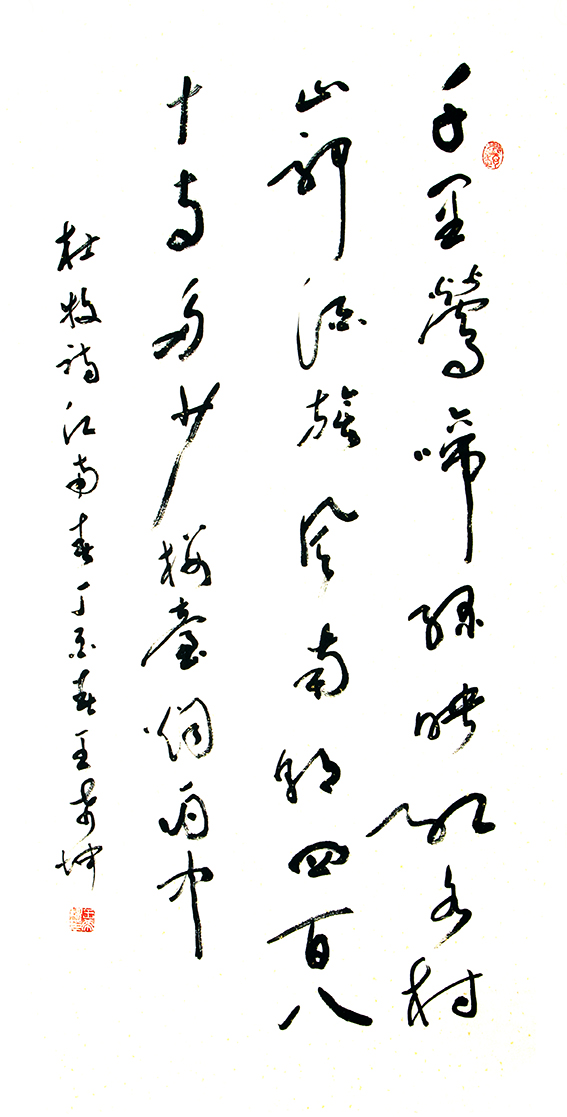 千里鶯啼綠映紅水村
山郭酒旗風南朝四百八
十寺多少樓臺烟雨中
杜牧詩江南春丁亥春王希坤